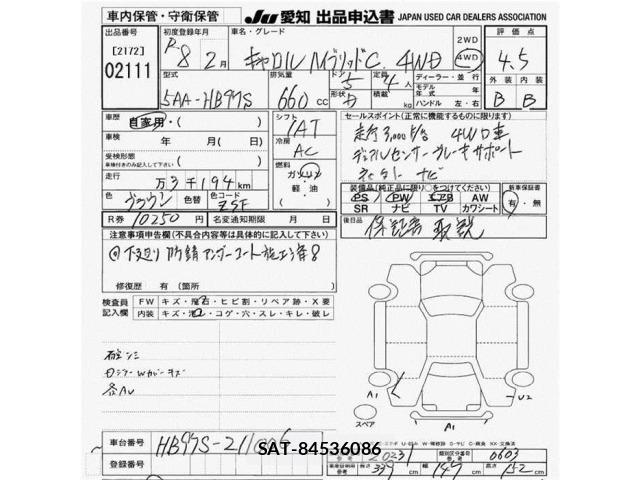 車内保管・守衛保管
JU 愛知 出品申込書 JAPAN USED CAR DEALERS ASSOCIATION
出品番号
[2172]
02111
初度登録年月
R 8 2月
車名・グレード
キャロル ハイブリッドC 4WD
2WD
4WD
評価点
4.5
型式
5AA-HB97S
排気量
660 cc
ドア 5
形状 D
定員 4人
積載 kg
ディーラー・並行
モデル年式 年
ハンドル 左・右
外装 内装
B B
車歴 自家用・( )
車検 年 月( 日)
受検形態
車検付きのみ記入して下さい
( )
シフト
IAT
冷房
AC
燃料
ガソリン
軽・油
( )
セールスポイント(正常に機能するものに限ります)
走行3,000km 4WD車
デュアルセンサーブレーキサポート
ナビ
走行 万3千194km
色 ブラウン 色替 色コード ZSF
R券 10250円 名変通知期限 月 日
装備品(純正品に限り○をつけてください)
PS PW AW
SR ナビ TV カワシート
新車保証書
有・無
後日品 保証書 取説
注意事項申告欄(不具合内容等は具体的に記入して下さい)
下廻り防錆アンダーコート施工済
修復歴 有(箇所 )
検査員
記入欄
FW キズ・飛石・ヒビ割・リペア跡・X要
内装 キズ・汚・コゲ・穴・スレ・キレ・破レ
A1
U2
スペア
A1
車台番号 HB97S-211
SAT-84536086
登録番号
類別区分番号
0603
長さ 339 cm 幅 147 cm 高さ 152 cm